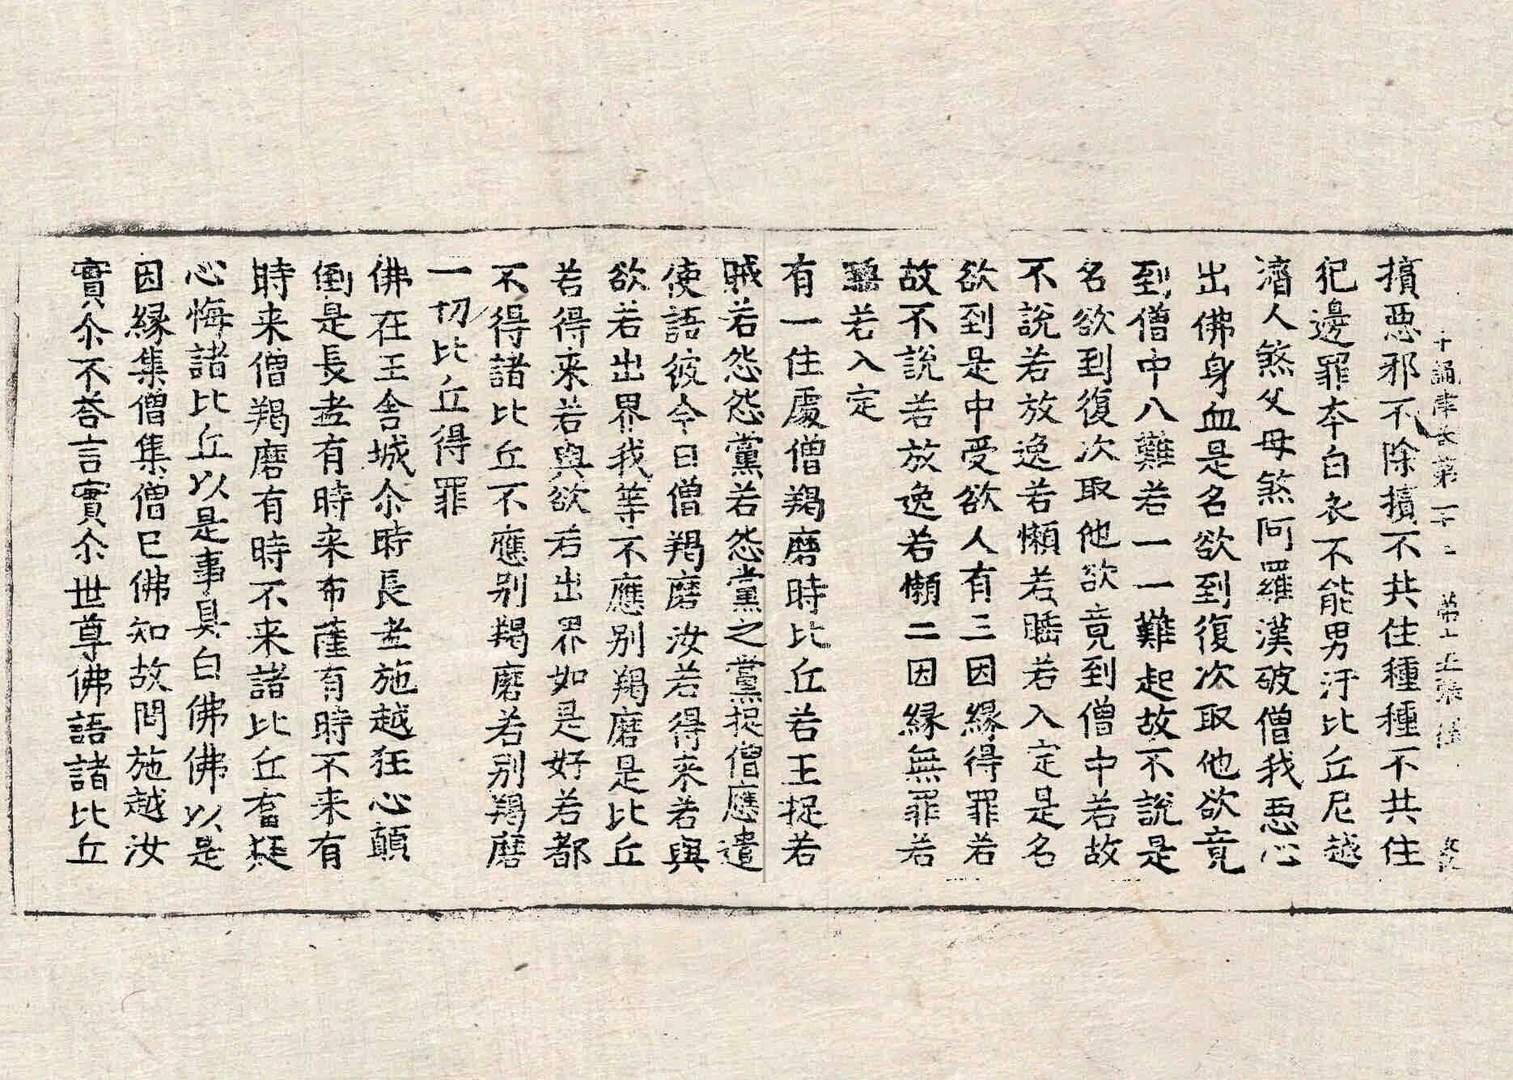 十誦律 第二十二 第十五張
擯惡邪不除擯不共住種種不共住
犯邊罪本白衣不能男汙比丘尼越
濟人煞父母煞阿羅漢破僧我惡心
出佛身血是名欲到復次取他欲竟
到僧中八難若一一難起故不說是
名欲到復次取他欲竟到僧中若故
不說若放逸若懶若睡若入定是名
欲到是中受欲人有三因緣得罪若
故不說若放逸若懶二因緣無罪若
睡若入定
有一住處僧羯磨時比丘若王捉若
賊若怨怨黨若怨黨之黨捉僧應遣
使語彼今日僧羯磨汝若得来若與
欲若出界我等不應別羯磨是比丘
若得来若與欲若出界如是好若都
不得諸比丘不應別羯磨若別羯磨
一切比丘得罪
佛在王舍城尒時長老施越狂心顛
倒是長老有時来布薩有時不来有
時来僧羯磨有時不来諸比丘畜疑
心悔諸比丘以是事具白佛佛以是
因緣集僧集僧已佛知故問施越汝
實尒不荅言實尒世尊佛語諸比丘